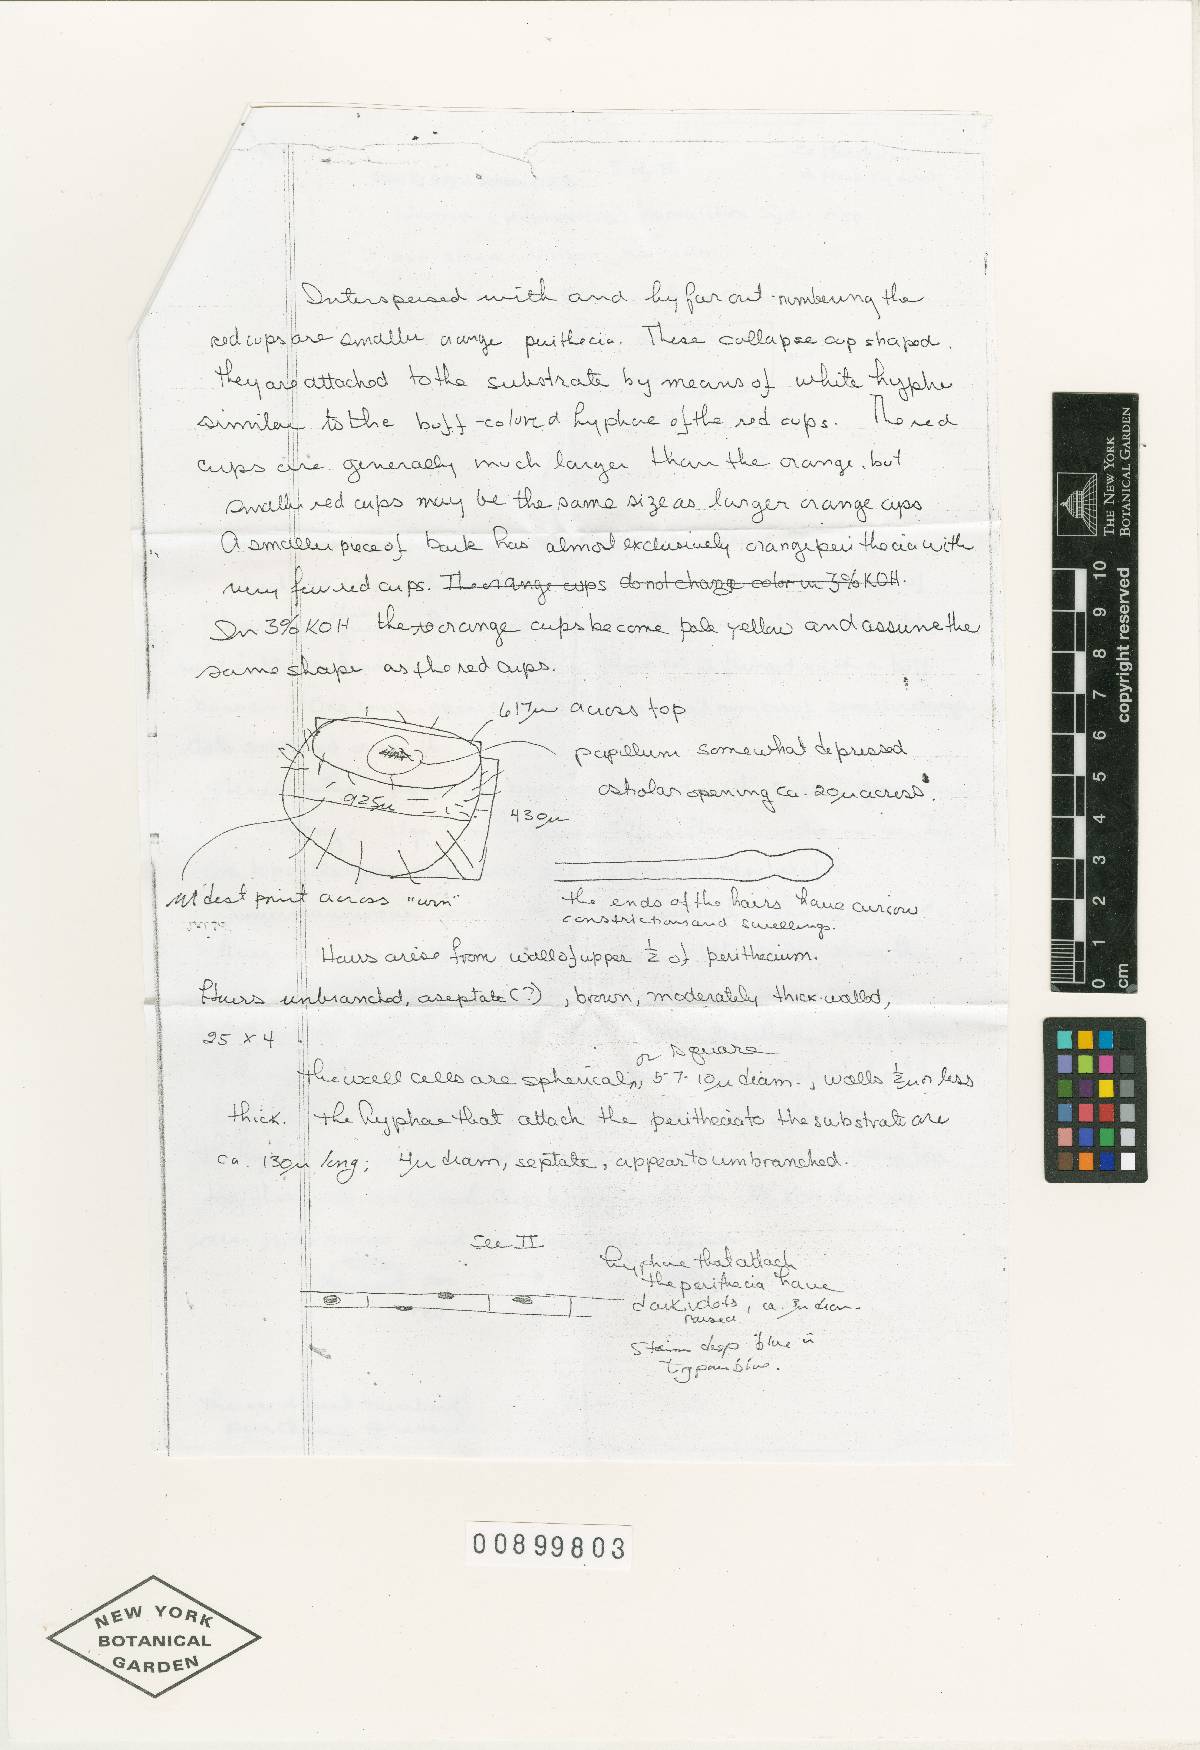 Interspersed with and by far out-numbering the
red cups are smaller orange perithecia. These collapse cup shaped.
They are attached to the substrate by means of white hyphe
similar to the buff-colored hyphae of the red cups. The red
cups are generally much larger than the orange, but
smaller red cups may be the same size as larger orange cups
A smaller piece of bark has almost exclusively orange perithecia with
very few red cups. The orange cups do not change color in 3% KOH.
In 3% KOH the orange cups become pale yellow and assume the
same shape as the red cups.
617µ across top
papillum somewhat depressed
ostiolar opening ca. 20µ across.
925µ
430µ
widest point across "urn"
the ends of the hairs have curious
constrictions and swellings.
Hairs arise from wall of upper ½ of perithecium.
Hairs unbranched, aseptate (?), brown, moderately thick-walled,
25 x 4
or square
The cells are spherical, 5-7-10µ diam., walls ½µ or less
thick. The hyphae that attach the perithecia to the substrate are
ca. 130µ long; 4µ diam, septate, appear to unbranched.
See II
hyphae that attach
the perithecia have
dark dots, ca. 3µ diam.
raised
Stain deep blue in
trypan blue.
THE NEW YORK
BOTANICAL GARDEN
10 9 8 7 6 5 4 3 2 1 0
cm
copyright reserved
00899803
NEW YORK
BOTANICAL
GARDEN